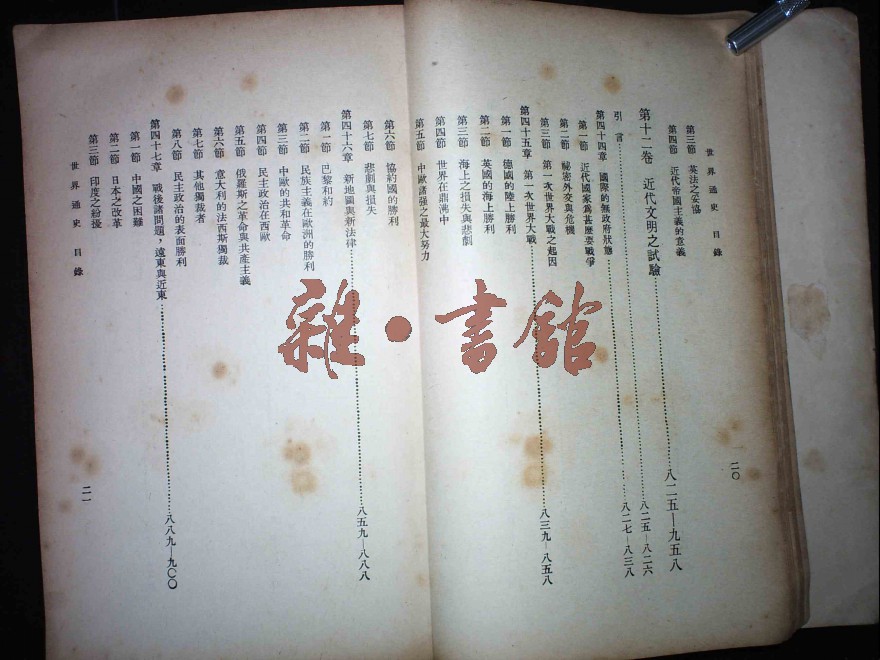 世界通史 目錄
二〇
第三節 英法之妥協
第四節 近代帝國主義的意義
第十二卷 近代文明之試驗……八二五—九五八
引言……八二五—八二六
第四十四章 國際的無政府狀態……八二七—八三八
第一節 近代國家爲甚麼要戰爭
第二節 秘密外交與危機
第三節 第一次世界大戰之起因
第四十五章 第一次世界大戰……八三九—八五八
第一節 德國的陸上勝利
第二節 英國的海上勝利
第三節 海上之損失與悲劇
第四節 世界在鼎沸中
第五節 中歐諸强之最大努力
第六節 協約國的勝利
第七節 悲劇與損失
第四十六章 新地圖與新法律……八五九—八八八
第一節 巴黎和約
第二節 民族主義在歐洲的勝利
第三節 中歐的共和革命
第四節 民主政治在西歐
第五節 俄羅斯之革命與共產主義
第六節 意大利的法西斯獨裁
第七節 其他獨裁者
第八節 民主政治的表面勝利
第四十七章 戰後諸問題，遠東與近東……八八九—九〇〇
第一節 中國之困難
第二節 日本之改革
第三節 印度之紛擾
世界通史 目錄
二一
雜·書館